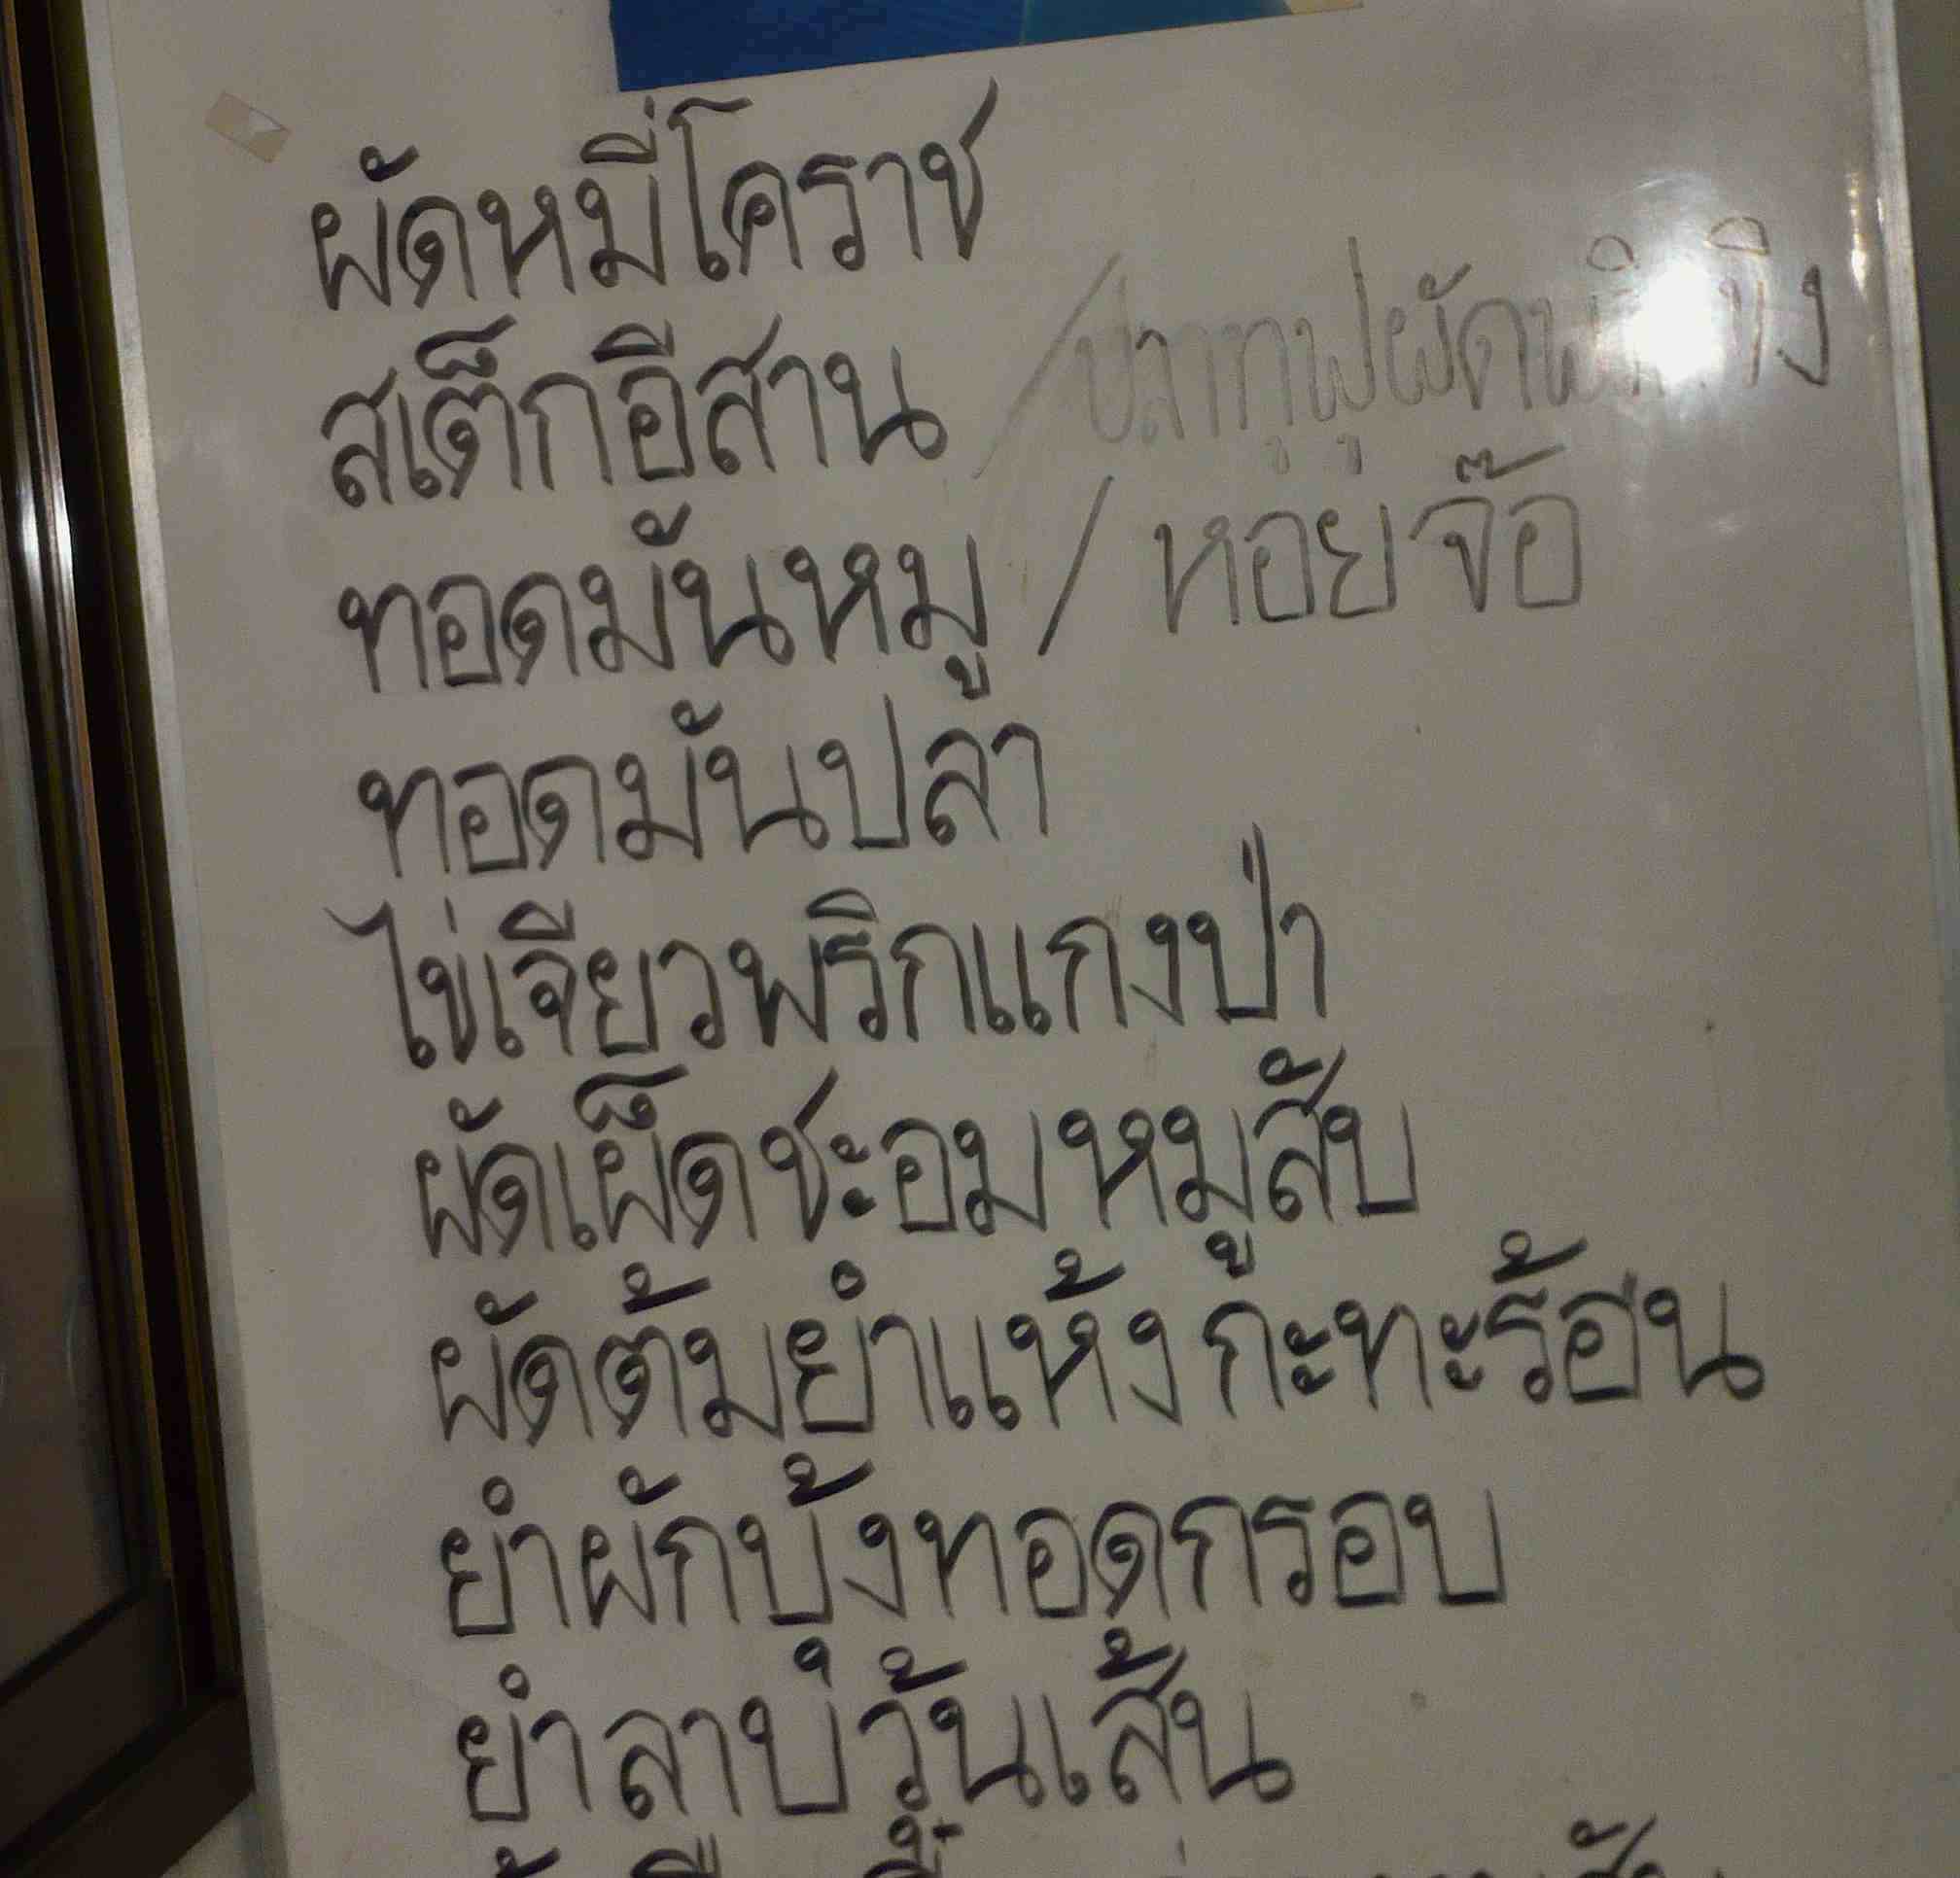 ผัดหมี่โคราช
สเต็กอีสาน / ปลาทูฟูผัดพริกขิง
ทอดมันหมู / หอยจ๊อ
ทอดมันปลา
ไข่เจียวพริกแกงป่า
ผัดเผ็ดชะอมหมูสับ
ผัดต้มยำแห้งกะทะร้อน
ยำผักบุ้งทอดกรอบ
ยำลาบวุ้นเส้น